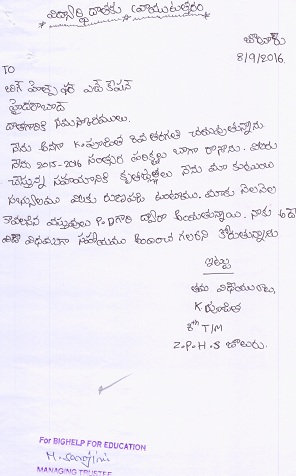 విద్యార్థి దాతకు వ్రాయు ఉత్తరం
జాలూరు
8/9/2016.
TO
బిగ్ హెల్ప్ ఫర్ ఎడ్యుకేషన్
హైదరాబాద్
దాతగారికి నమస్కారములు.
నేను అనగా K. పూజిత 8వ తరగతి చదువుతున్నాను
నేను 2015-2016 సంత్సర పరీక్షలు బాగా రాసాను. మీరు
చేస్తున్న సహాయానికి కృతజ్ఞతలు నేను మా కుటుంబ
సభ్యులము మీకు రుణపడి ఉంటాము. మాకు నెలనెల
కావలసిన వస్తువులు P.D గారి ద్వారా అందుతున్నాయి. నాకు ఇదే
విధముగా సహాయము అందించ గలరని కోరుతున్నాను
ఇట్లు
తమ విధేయురాలు,
K పూజిత
8th T/M
Z.P.H.S జాలూరు.
For BIGHELP FOR EDUCATION
MANAGING TRUSTEE